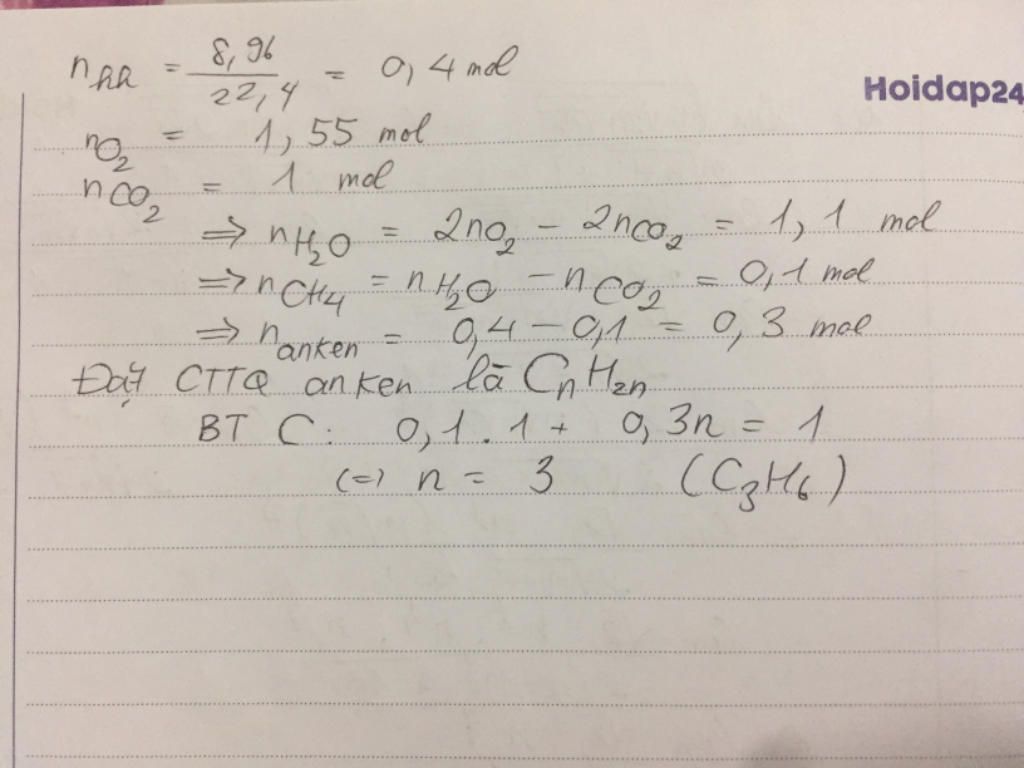 n_hh = 8,96 / 22,4 = 0,4 mol
Hoidap24
n_O₂ = 1,55 mol
n_CO₂ = 1 mol
=> n_H₂O = 2n_O₂ - 2n_CO₂ = 1,1 mol
=> n_CH₄ = n_H₂O - n_CO₂ = 0,1 mol
=> n_anken = 0,4 - 0,1 = 0,3 mol
Đặt CTTQ anken là CₙH₂ₙ
BT C: 0,1.1 + 0,3n = 1
(=) n = 3 (C₃H₆)